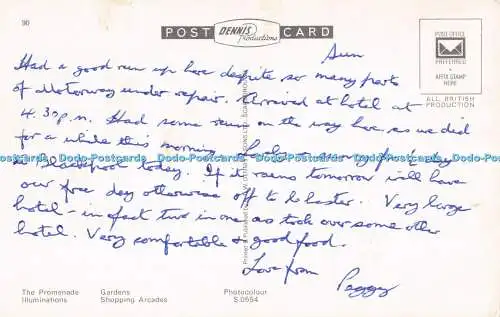 90
POST DENNIS Productions CARD
POST OFFICE
PREFERRED
AFFIX STAMP
HERE
ALL BRITISH
PRODUCTION
Sun
Had a good run up here despite so many parts
of Motorway under repair. Arrived at hotel at
4.30p.m. Had some rain on the way here as we did
for a while this morning
in Blackpool today. If it rains tomorrow will have
our free day otherwise off to Lancaster. Very large
hotel - in fact two in one as took over some other
hotel. Very comfortable & good food.
Love from
Peggy
Dodo-Postcards Dodo-Postcards Dodo-Postcards Dodo-Postcards Dodo-Postcards
The Promenade Gardens Photocolour
Illuminations Shopping Arcades S.0554